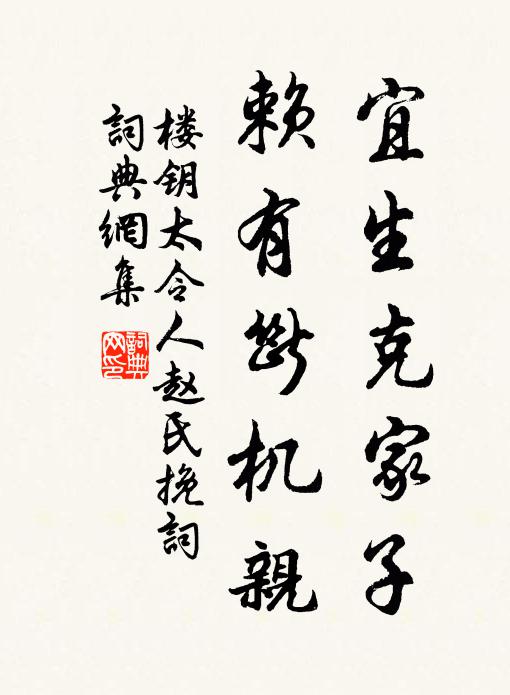 宜生克家子
賴有斷机親
楼钥太令人赵氏挽詞
詞典網集
詞典網印